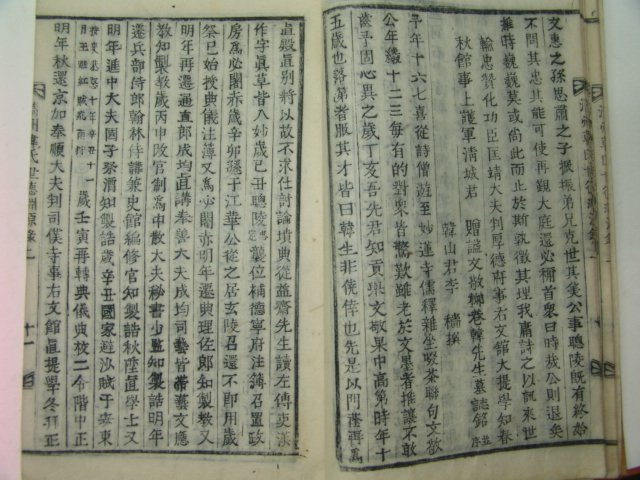 文惠之孫思肅之子掀振弟兄克世其美公事聰陵旣有終始
不問其忠其能可使再觀大庭還必稱首衆曰時哉公則退矣
推時巍巍莫或尚此於斯孰徵其理我庸詩之以訊來世
輸忠贊化功臣匡靖大夫判厚德府事右文館大提學知春
秋館事上護軍淸城君 贈諡文敬柳巷韓先生墓誌銘 並序
韓山君李 穡 撰
予年十六七喜從詩僧遊至妙蓮寺儒釋雜坐啜茶聯句文敬
公年纔十二三每有的對衆皆驚歎雖老於文墨者推讓不敢
齒予固心異之歲丁亥吾先君知貢擧文敬果中高第時年十
五歲也落第者服其才咸曰韓生非僥倖也先是以門蔭再爲
眞殿直別將以故不求仕討論墳典從益齋先生讀左傳史漢
作字眞草皆入妙歲己丑聰陵襲位補德寧府注簿召置政
房爲必闍赤歲辛卯遜于江華公從之居玄陵召還不卽用歲
癸巳始授典儀注簿又爲必闍赤明年遷典理佐郞知製敎又
明年再遷通直郞成均直講奉善大夫成均司藝皆帶藝文應
敎知製敎歲丙申改官制爲中散大夫秘書少監知製誥明年
遷兵部侍郞翰林侍講兼史館編修官知製誥秋陞直學士又
明年進中大夫國子祭酒知製誥歲辛丑國家避沙賊于安東
歲壬寅再轉典儀典校二令階中正
明年秋還京加奉順大夫判司僕寺事右文館直提學冬拜正
淸州韓氏世德淵源錄 一
十一